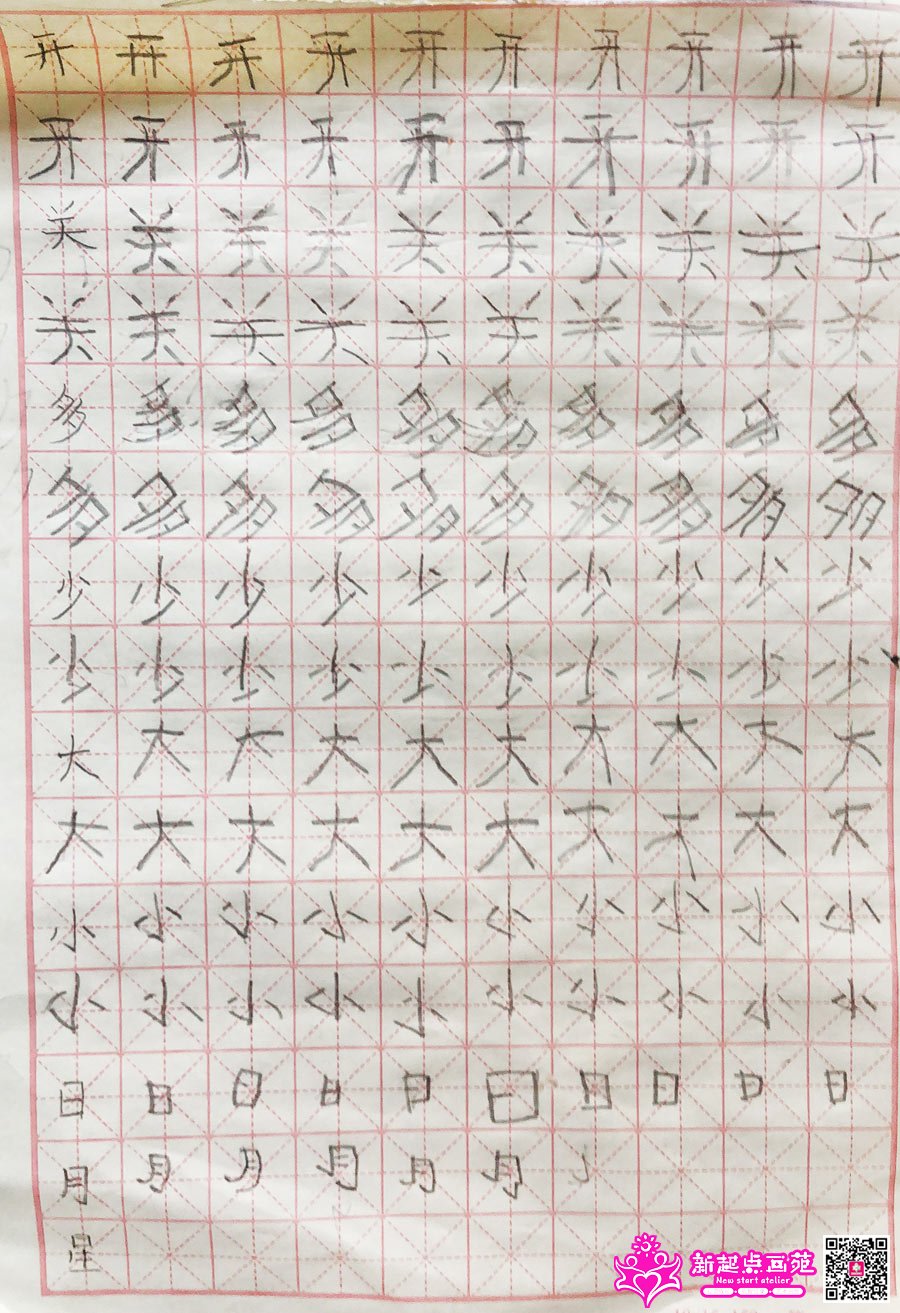 开开开开开开开开开开
开开开开开开开开开开
关关关关关关关关关关
关关关关关关关关关关
多多多多多多多多多多
多多多多多多多多多多
少少少少少少少少少少
少少少少少少少少少少
大大大大大大大大大大
大大大大大大大大大大
小小小小小小小小小小
小小小小小小小小小小
日日日日日日日日日日
月月月月月月
星
新起点画苑
New start atelier